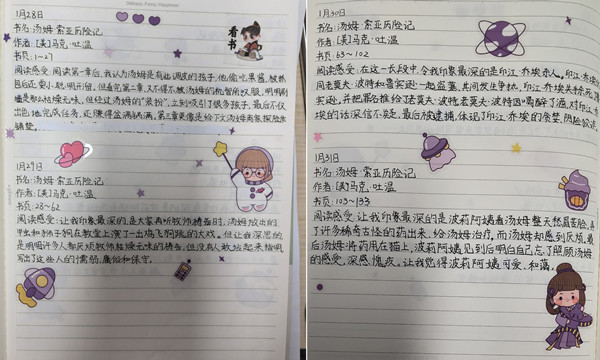 1月28日
书名:汤姆·索亚历险记
作者:[美]马克·吐温
书页:1~27
阅读感受:阅读第一章后,我认为汤姆是有些调皮的孩子,他偷吃果酱,被抓
后还耍小聪明开溜。但看完第二章,又不得不被汤姆的机智所叹服,明明刷
墙是那么枯燥无味,但经过汤姆的“装扮”,立刻吸引了很多孩子,最后不仅
出色地完成任务,还赚得盆满钵满。第二章像是给下文汤姆商家探险来
铺垫。
看书
1月29日
书名:汤姆·索亚历险记
作者:[美]马克·吐温
书页:28~62
阅读感受:让我印象最深的是大家再听牧师祷告时,汤姆放出的
甲虫和狮子狗在教堂上演了一出鸡飞狗跳的大戏。但让我深思的
是明明许多人都厌烦牧师枯燥无味的祷告,但没有人敢站起来指明
写出了这些人的懦弱、虚伪和保守。
1月30日
书名:汤姆·索亚历险记
作者:[美]马克·吐温
书页:63~102
阅读感受:在这一长段中,令我印象最深的是印江·乔埃杀人。印江·乔埃
同老莫夫·波特和鲁宾逊一起盗墓,其间发生争执,印江·乔埃失手杀死
宾逊,并把罪名推给了老莫夫·波特,老莫夫·波特因喝醉了酒,对印江·乔
埃的话深信不疑,最后被逮捕,体现了印江·乔埃的贪婪、阴险、狡诈
1月31日
书名:汤姆·索亚历险记
作者:[美]马克·吐温
书页:103~133
阅读感受:让我印象最深的是波莉阿姨看汤姆整天愁眉苦脸,弄
了许多稀奇古怪的药出来,给汤姆治疗,而汤姆却感到厌烦,最
后汤姆将药用在猫上,波莉阿姨见到后明白自己忘了照顾汤姆
的感受,深感愧疚。让我觉得波莉阿姨可爱、和蔼。